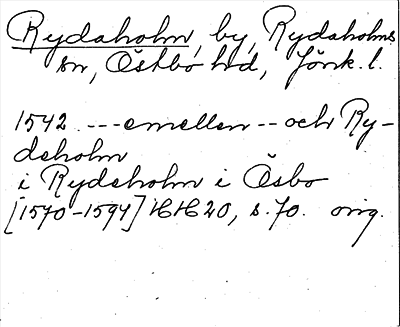 Rydaholm, by, Rydaholms
sn, Östbo hd, Jönk. l.
1542 ---emellen--och Ry-
deholm
i Rydeholm i Ösbo
[1570-1594] HH 20, s. 70. orig.